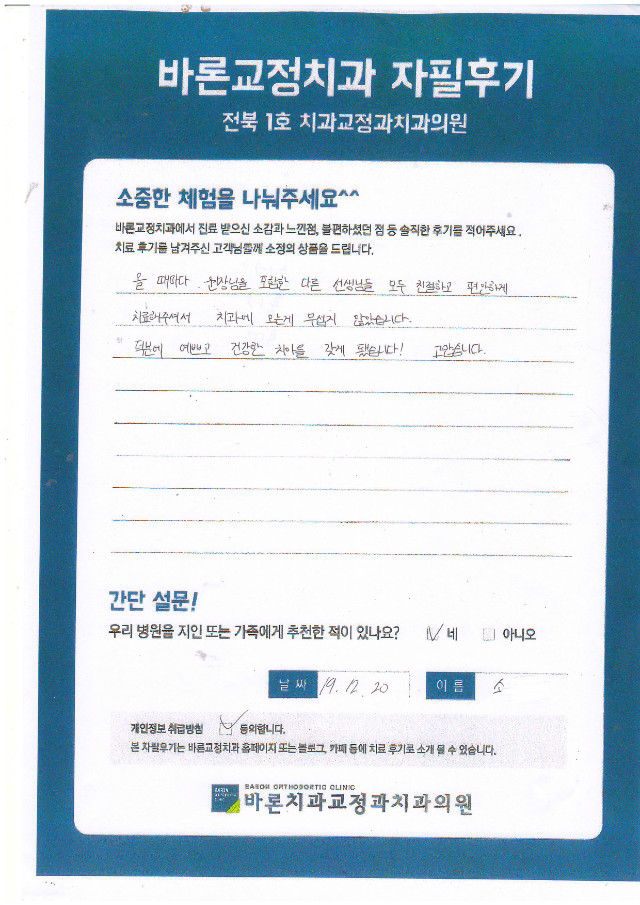 바론교정치과 자필후기
전북 1호 치과교정과치과의원
소중한 체험을 나눠주세요^^
바론교정치과에서 진료 받으신 소감과 느낀점, 불편하셨던 점 등 솔직한 후기를 적어주세요.
치료 후기를 남겨주신 고객님들께 소정의 상품을 드립니다.
올 때마다 원장님을 포함한 다른 선생님들 모두 친절하고 편안하게
치료해주셔서 치과에 오는게 무섭지 않았습니다.
덕분에 예쁘고 건강한 치아를 갖게 됐습니다! 고맙습니다.
간단 설문!
우리 병원을 지인 또는 가족에게 추천한 적이 있나요? 네 아니오
날짜 19. 12. 20 이름 소
개인정보 취급방침 동의합니다.
본 자필후기는 바론교정치과 홈페이지 또는 블로그, 카페 등에 치료 후기로 소개 될 수 있습니다.
BARON ORTHODONTIC CLINIC
바론치과교정과치과의원